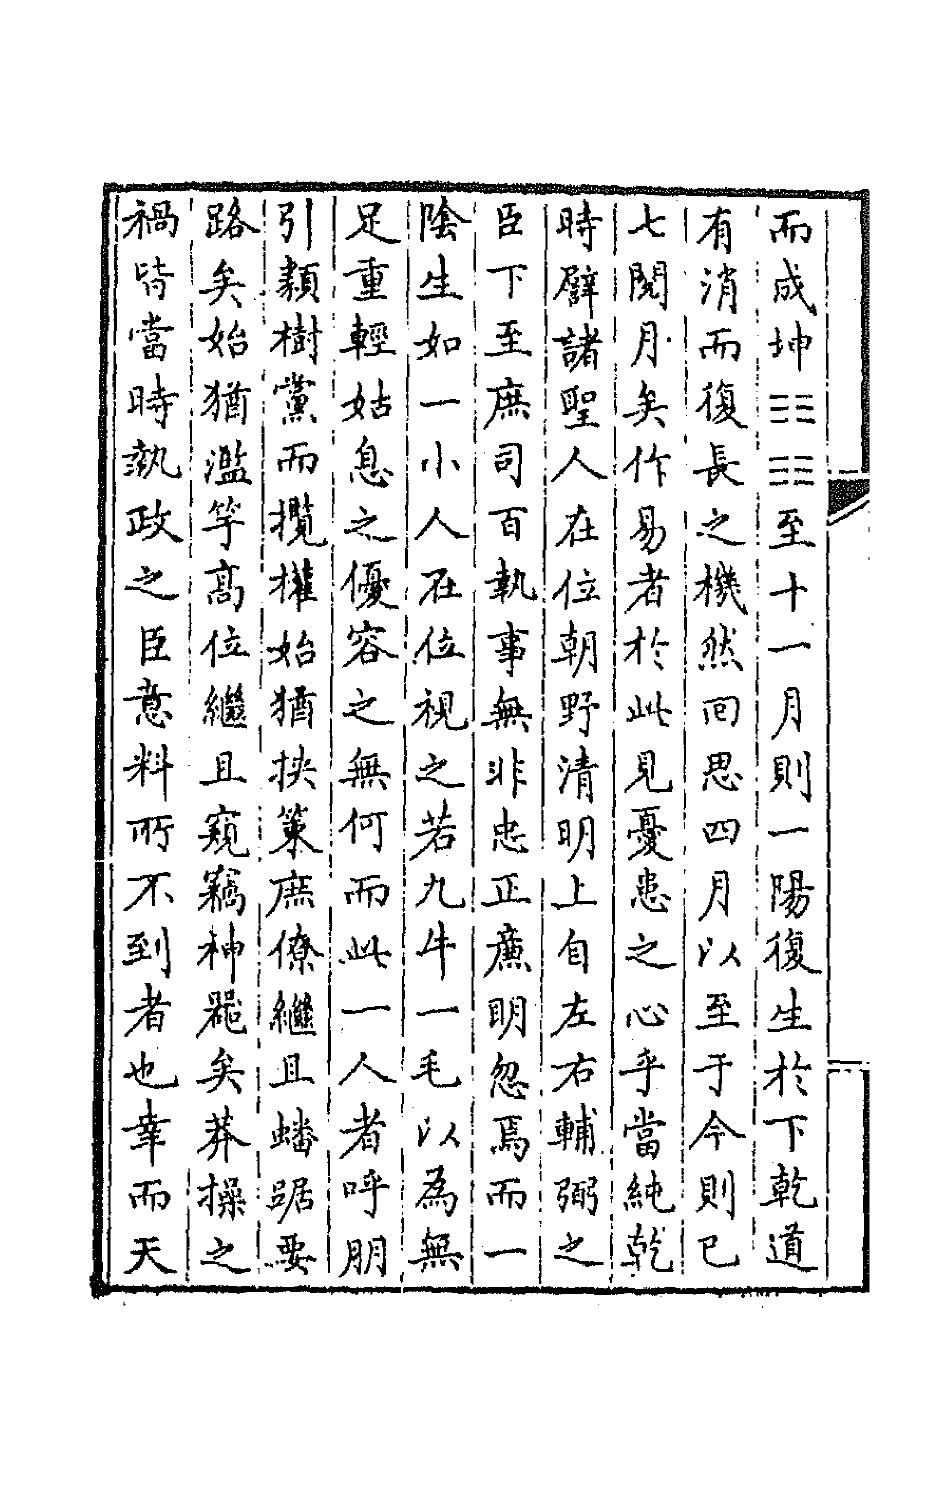 而成坤☷☷至十一月則一陽復生於下乾道
有消而復長之機然囘思四月以至于今則已
七閱月矣作易者於此見憂患之心乎當純乾
時譬諸聖人在位朝野清明上自左右輔弼之
臣下至庶司百執事無非忠正廉明忽焉而一
陰生如一小人在位視之若九牛一毛以為無
足重輕姑息之優容之無何而此一人者呼朋
引類樹黨而攬權始猶挾策庶僚繼且蟠踞要
路矣始猶濫竽高位繼且窺竊神器矣莽操之
禍皆當時執政之臣意料所不到者也幸而天